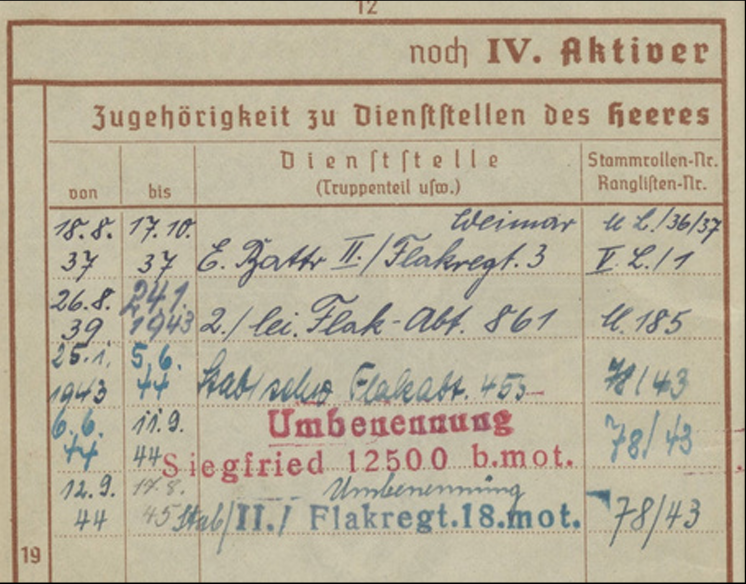 12
noch IV. Aktiver
Zugehörigkeit zu Dienststellen des Heeres
von bis Dienststelle (Truppenteil usw.) Stammrollen-Nr. Ranglisten-Nr.
18.8. 17.10. Weimar U L./36/37
37 37 E. Battr II./Flakregt. 3 V. L./1
26.8. 24.1.
39 1943 2./lei. Flak-Abt. 861 U. 185
25.1. 5.6.
1943 44 Stab/schw. Flakabt. 455 78/43
6.6. 11.9. Umbenennung
44 44 Siegfried 12500 b.mot. 78/43
12.9. 17.8. Umbenennung
44 45 Stab/II./ Flakregt.18.mot. 78/43
19